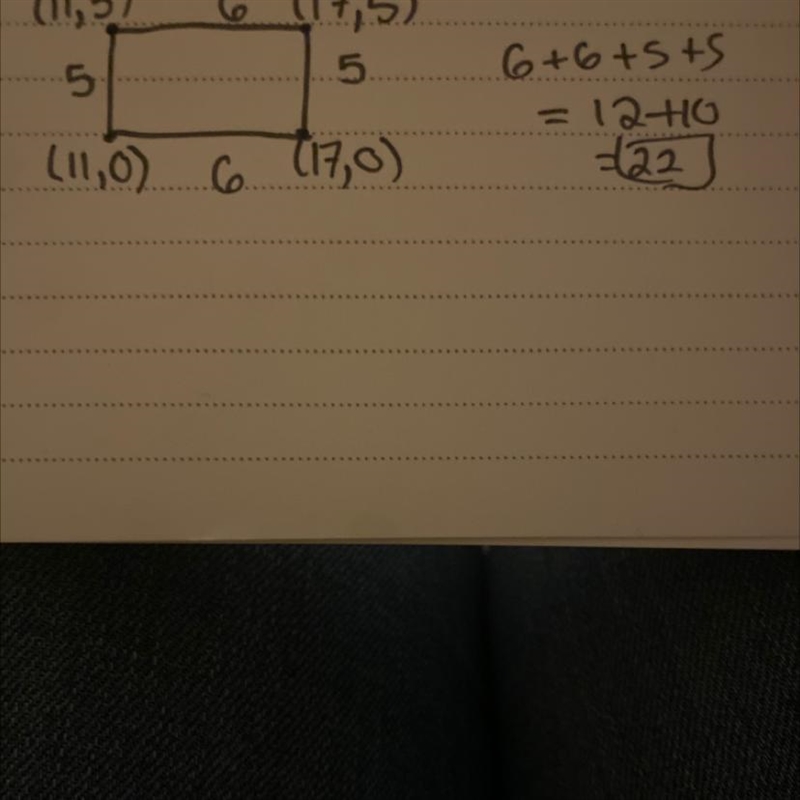 (11,5) 6 (17,5)
5 5
(11,0) 6 (17,0)
6+6+5+5
= 12+10
= 22